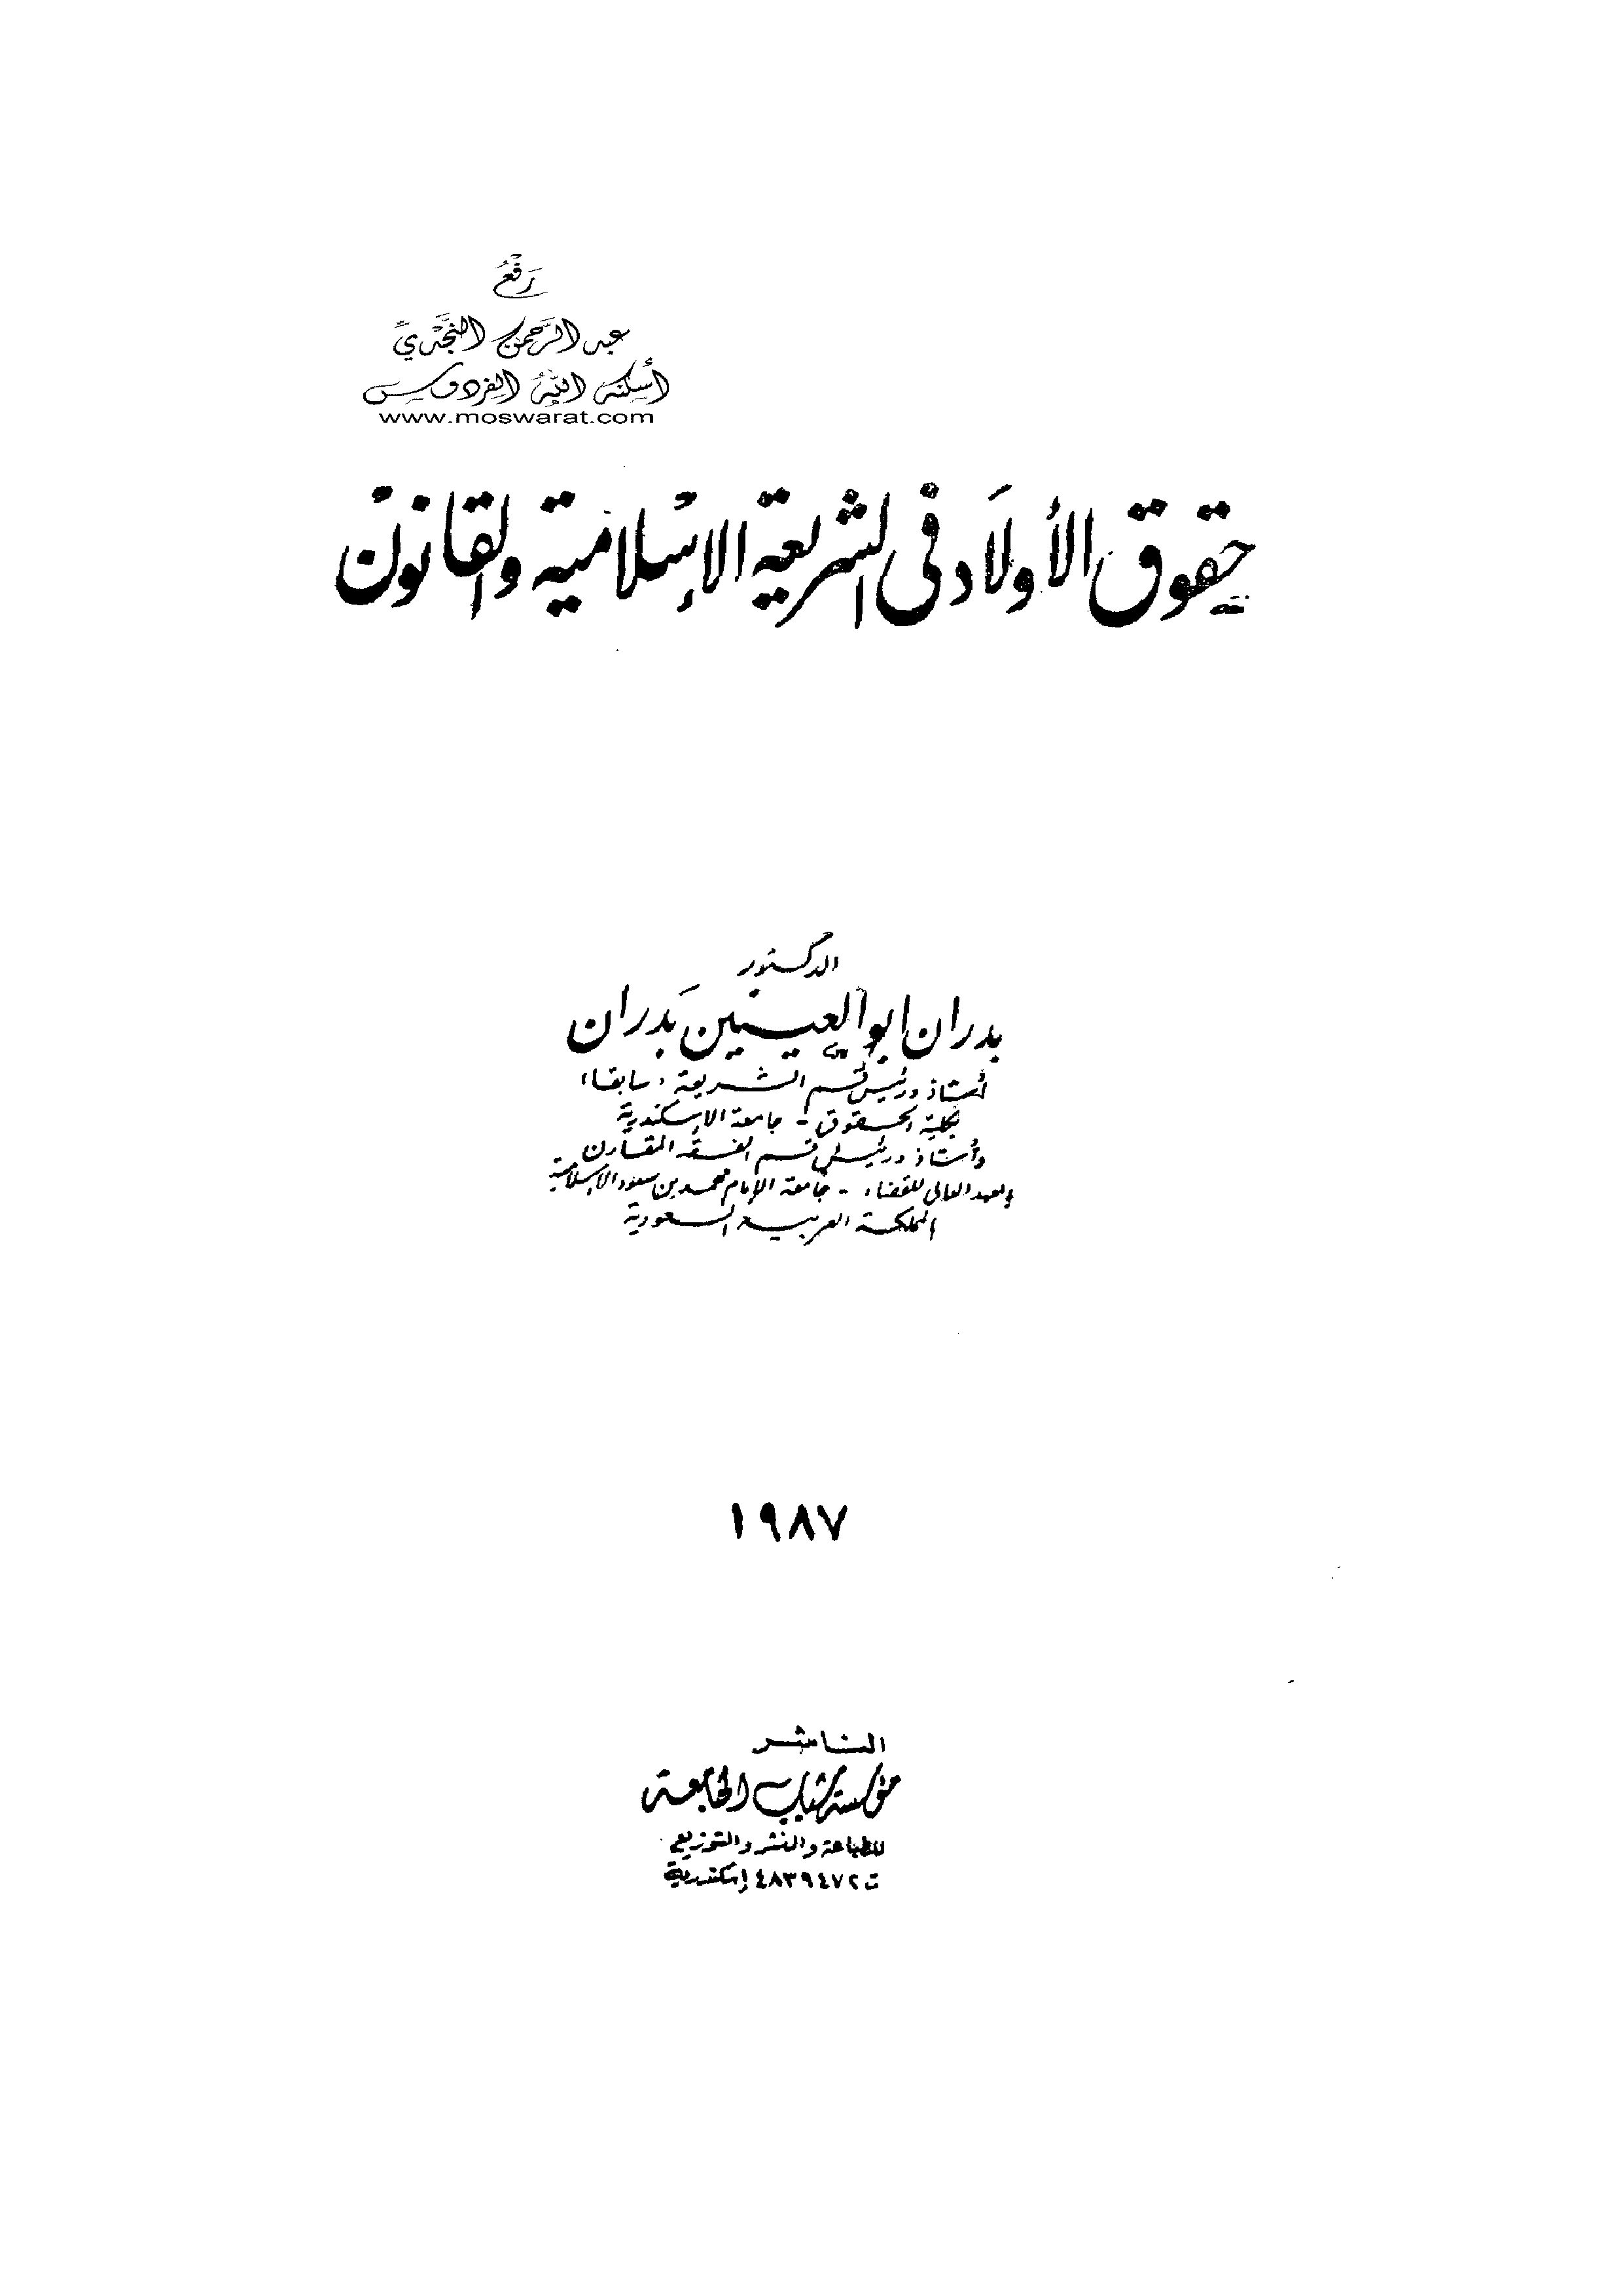 رَفْعُ
عبد الرَّحمن النَّجْديِّ
أسكنه اللهُ الفردوس
www.moswarat.com
حقوق الأولاد فى الشريعة الإسلامية والقانون
الدكتور
بدران ابو العينين بدران
أستاذ ورئيس قسم الشريعة «سابقا»
بكلية الحقوق - جامعة الإسكندرية
وأستاذ ورئيس قسم الفقه المقارن
بالمعهد العالى للقضاء - جامعة الإمام محمد بن سعود الإسلامية
المملكة العربية السعودية
١٩٨٧
الناشر
مؤسسة شباب الجامعة
للطباعة والنشر والتوزيع
ت ٤٨٣٩٤٧٢ إسكندرية